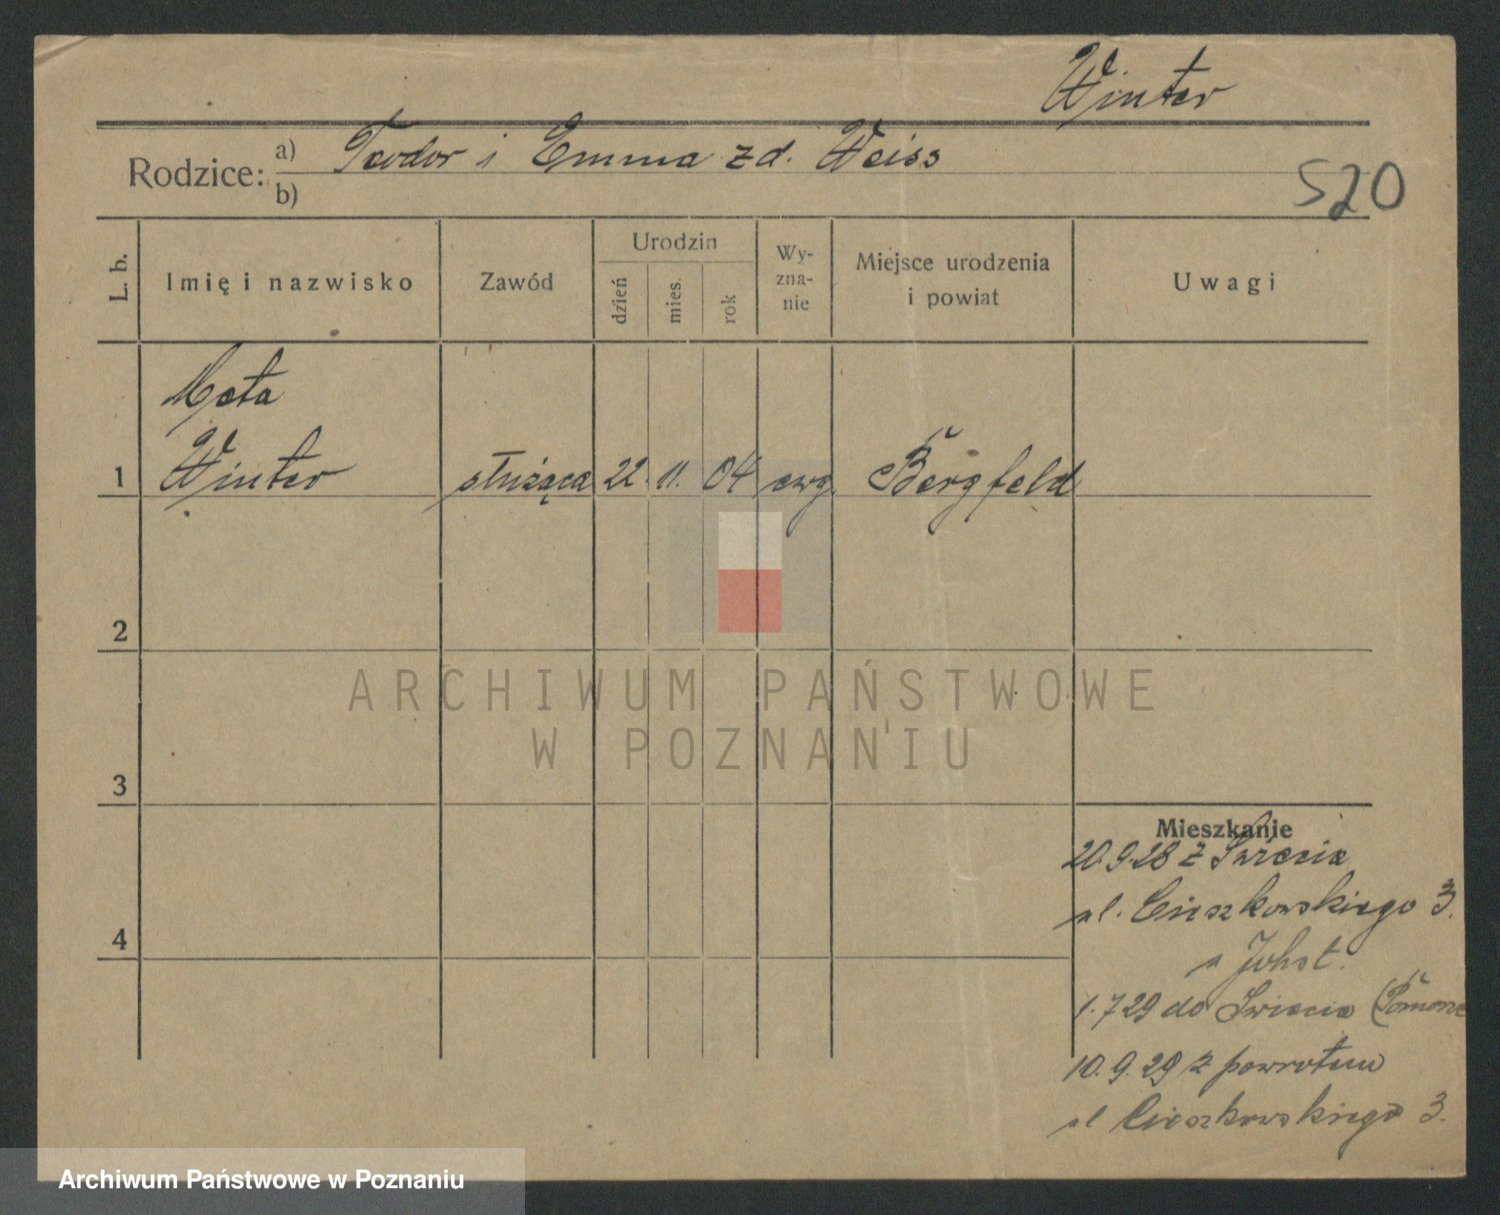 Winter
Rodzice: a) Teodor i Emma zd. Weiss
b)
520
L. b.
Imię i nazwisko
Zawód
Urodzin
dzień
mies.
rok
Wy-
zna-
nie
Miejsce urodzenia
i powiat
Uwagi
Meta
1 Winter służąca 22. 11. 04 ewg Bergfeld
2
ARCHIWUM PAŃSTWOWE
W POZNANIU
3
Mieszkanie
20.9.28 z Świecia
ul. Cieszkowskiego 3.
4
u Johst.
1.7 29 do Świecia (Pomorze
10.9.29 z powrotem
ul Cieszkowskiego 3.
Archiwum Państwowe w Poznaniu